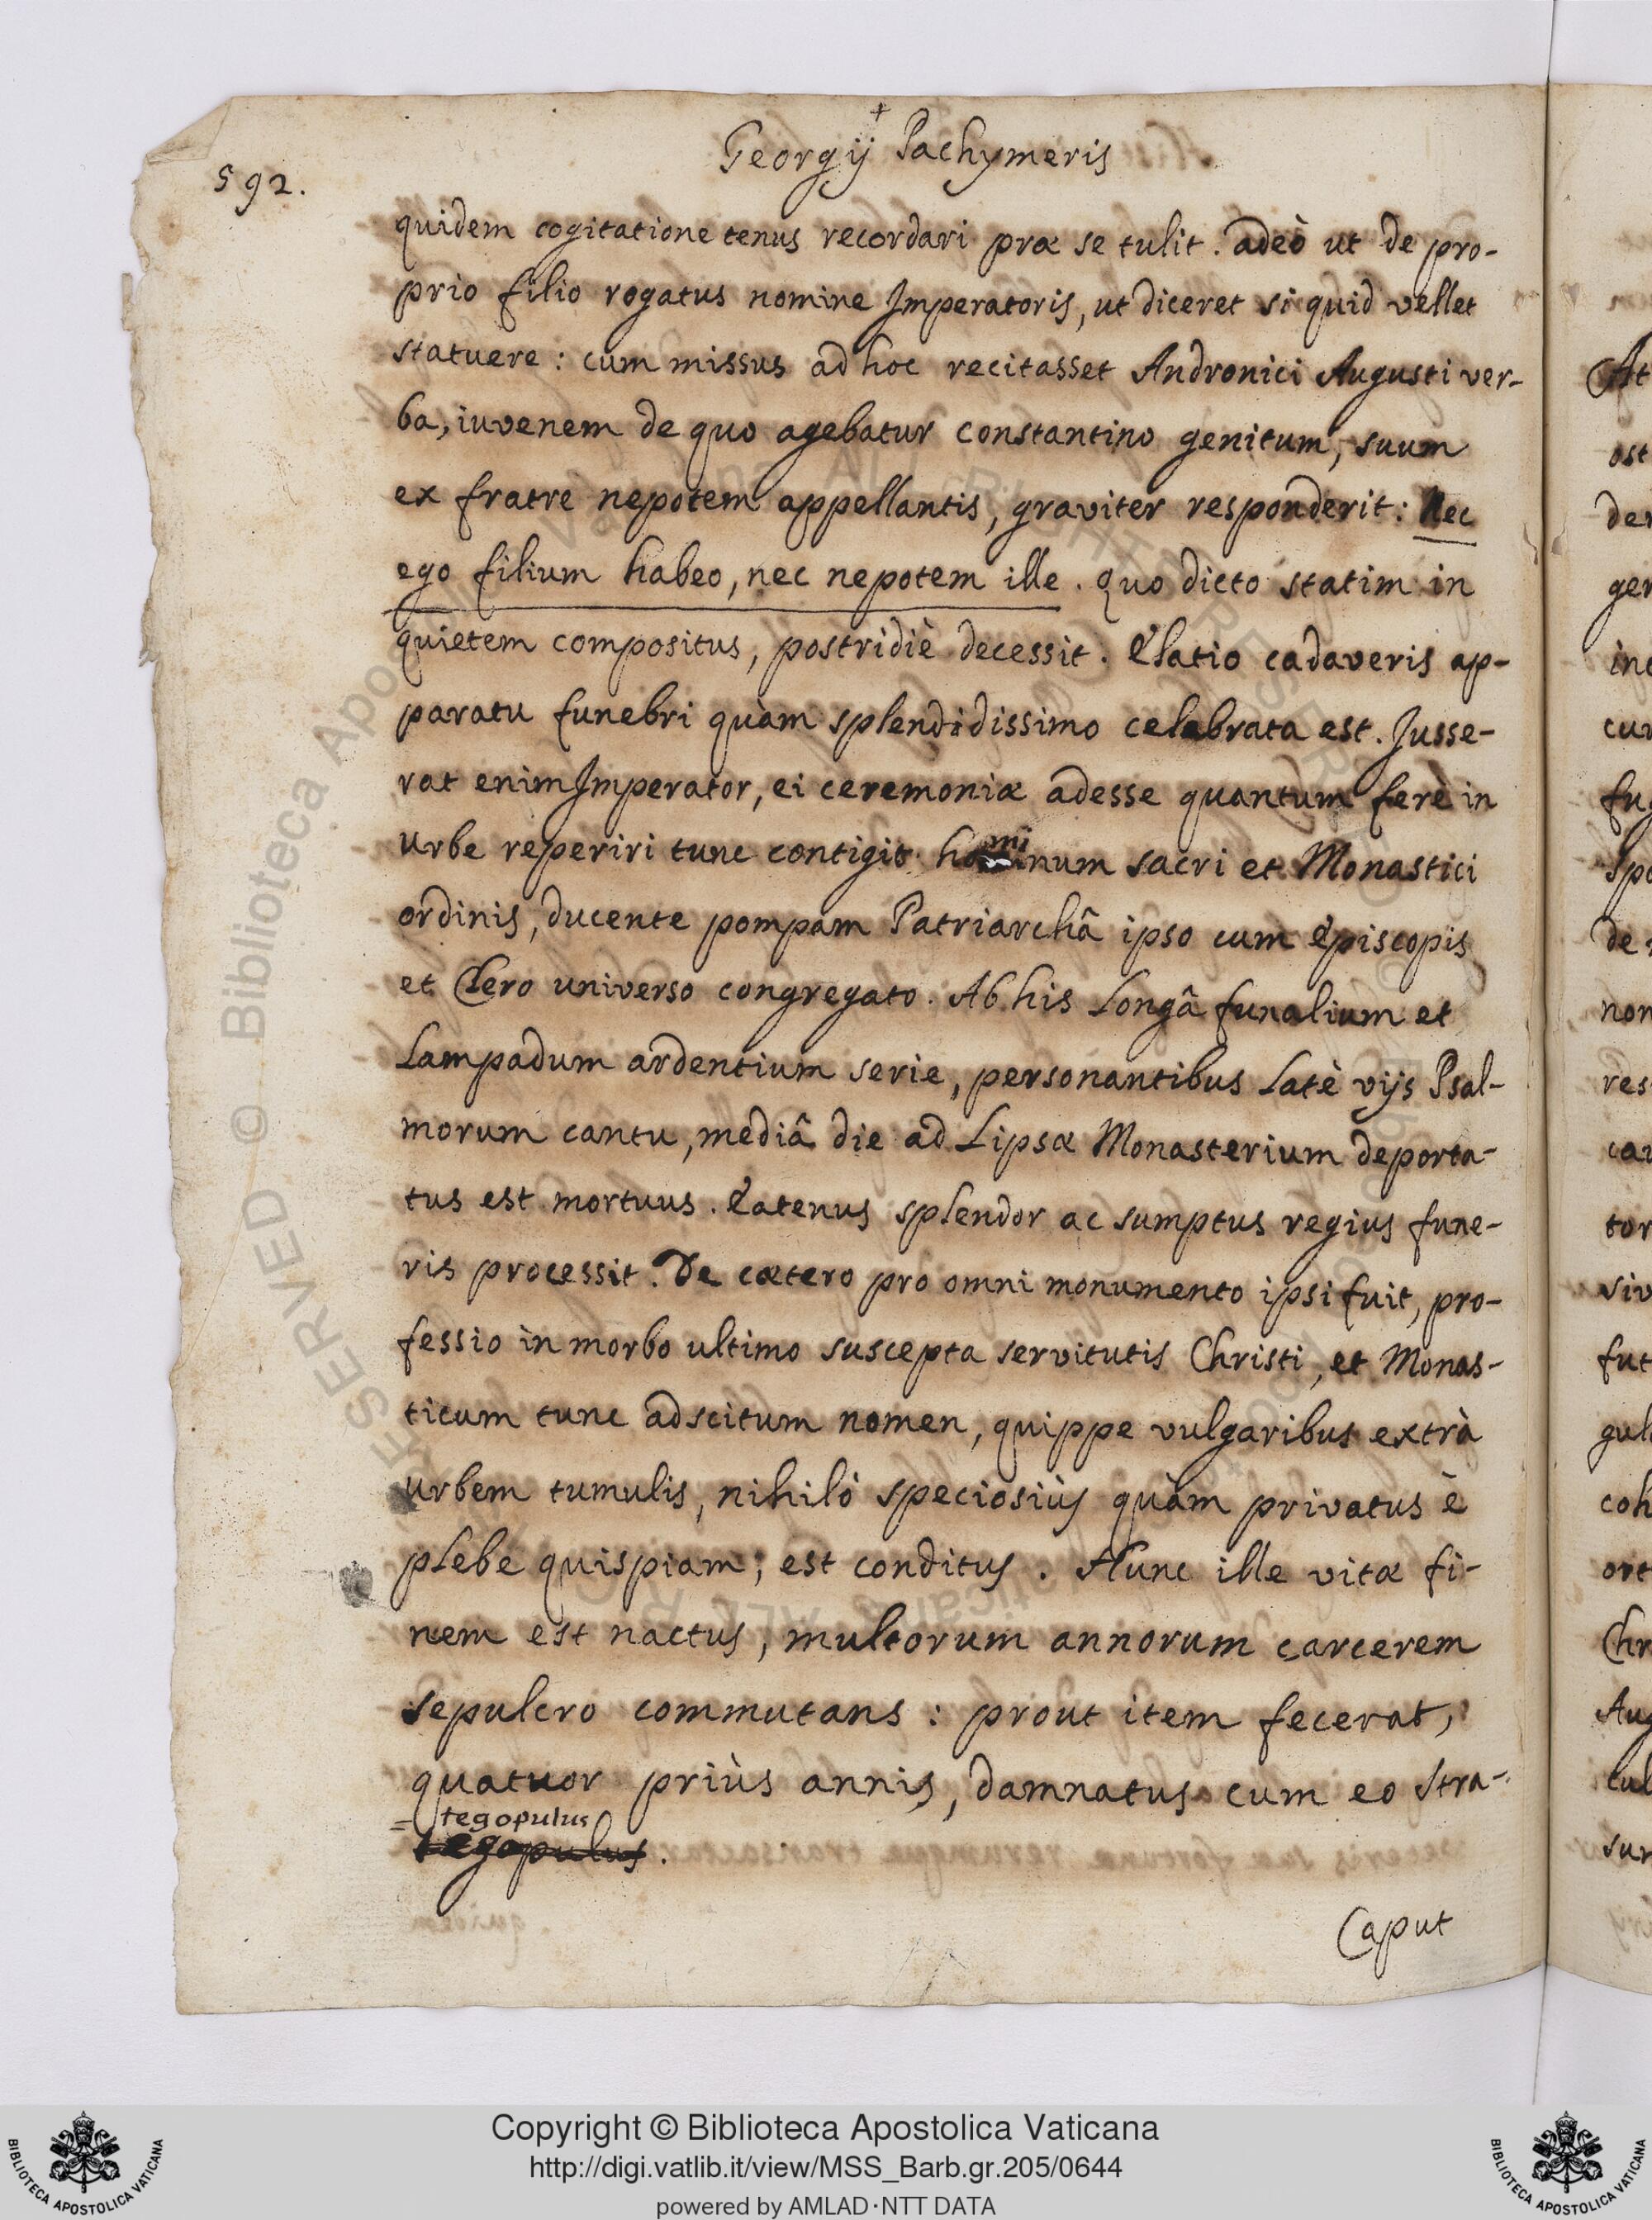 Georgij Pachymeris
592.
quidem cogitatione tenus recordari præ se tulit. adeò ut de pro-
prio filio rogatus nomine Imperatoris, ut diceret si quid vellet
statuere: cum missus ad hoc recitasset Andronici Augusti ver-
ba, iuvenem de quo agebatur Constantino genitum, suum
ex fratre nepotem appellantis, graviter responderit: Nec
ego filium habeo, nec nepotem ille. quo dicto statim in
quietem compositus, postridiè decessit. Elatio cadaveris ap-
paratu funebri quàm splendidissimo celebrata est. Jusse-
rat enim Imperator, ei ceremoniæ adesse quantum ferè in
Urbe reperiri tunc contigit hominum sacri et Monastici
ordinis, ducente pompam Patriarchâ ipso cum Episcopis
et Clero universo congregato. Ab his Longâ funalium et
Lampadum ardentium serie, personantibus Latè vijs Psal-
morum cantu, mediâ die ad Lipsæ Monasterium deporta-
tus est mortuus. Eatenus splendor ac sumptus regius fune-
ris processit. De cætero pro omni monumento ipsi fuit, pro-
fessio in morbo ultimo suscepta servitutis Christi, et Monas-
ticum tunc adscitum nomen, quippe vulgaribus extrà
Urbem tumulis, nihilò speciosiùs quàm privatus è
plebe quispiam, est conditus. Hunc ille vitæ fi-
nem est nactus, multorum annorum carcerem
sepulcro commutans: prout item fecerat,
quatuor priùs annis, damnatus cum eo Stra-
=tegopulus
tegopulus.
Caput
At
ost
der
ger
cur
fug
spo
de
non
res
car
tor
viv
fut
gul
coh
ort
Chr
Aug
cul
sur
© Biblioteca Apostolica Vaticana ALL RIGHTS RESERVED
Copyright © Biblioteca Apostolica Vaticana
http://digi.vatlib.it/view/MSS_Barb.gr.205/0644
powered by AMLAD·NTT DATA
BIBLIOTECA APOSTOLICA VATICANA
BIBLIOTECA APOSTOLICA VATICANA